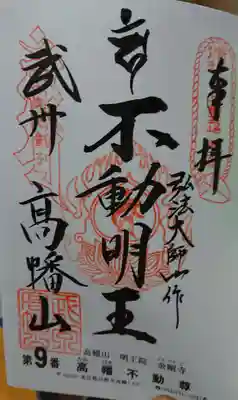 奉拝
不動明王
弘法大師作
武州
高幡山
高幡山 明王院 金剛寺
第9番 高幡不動尊